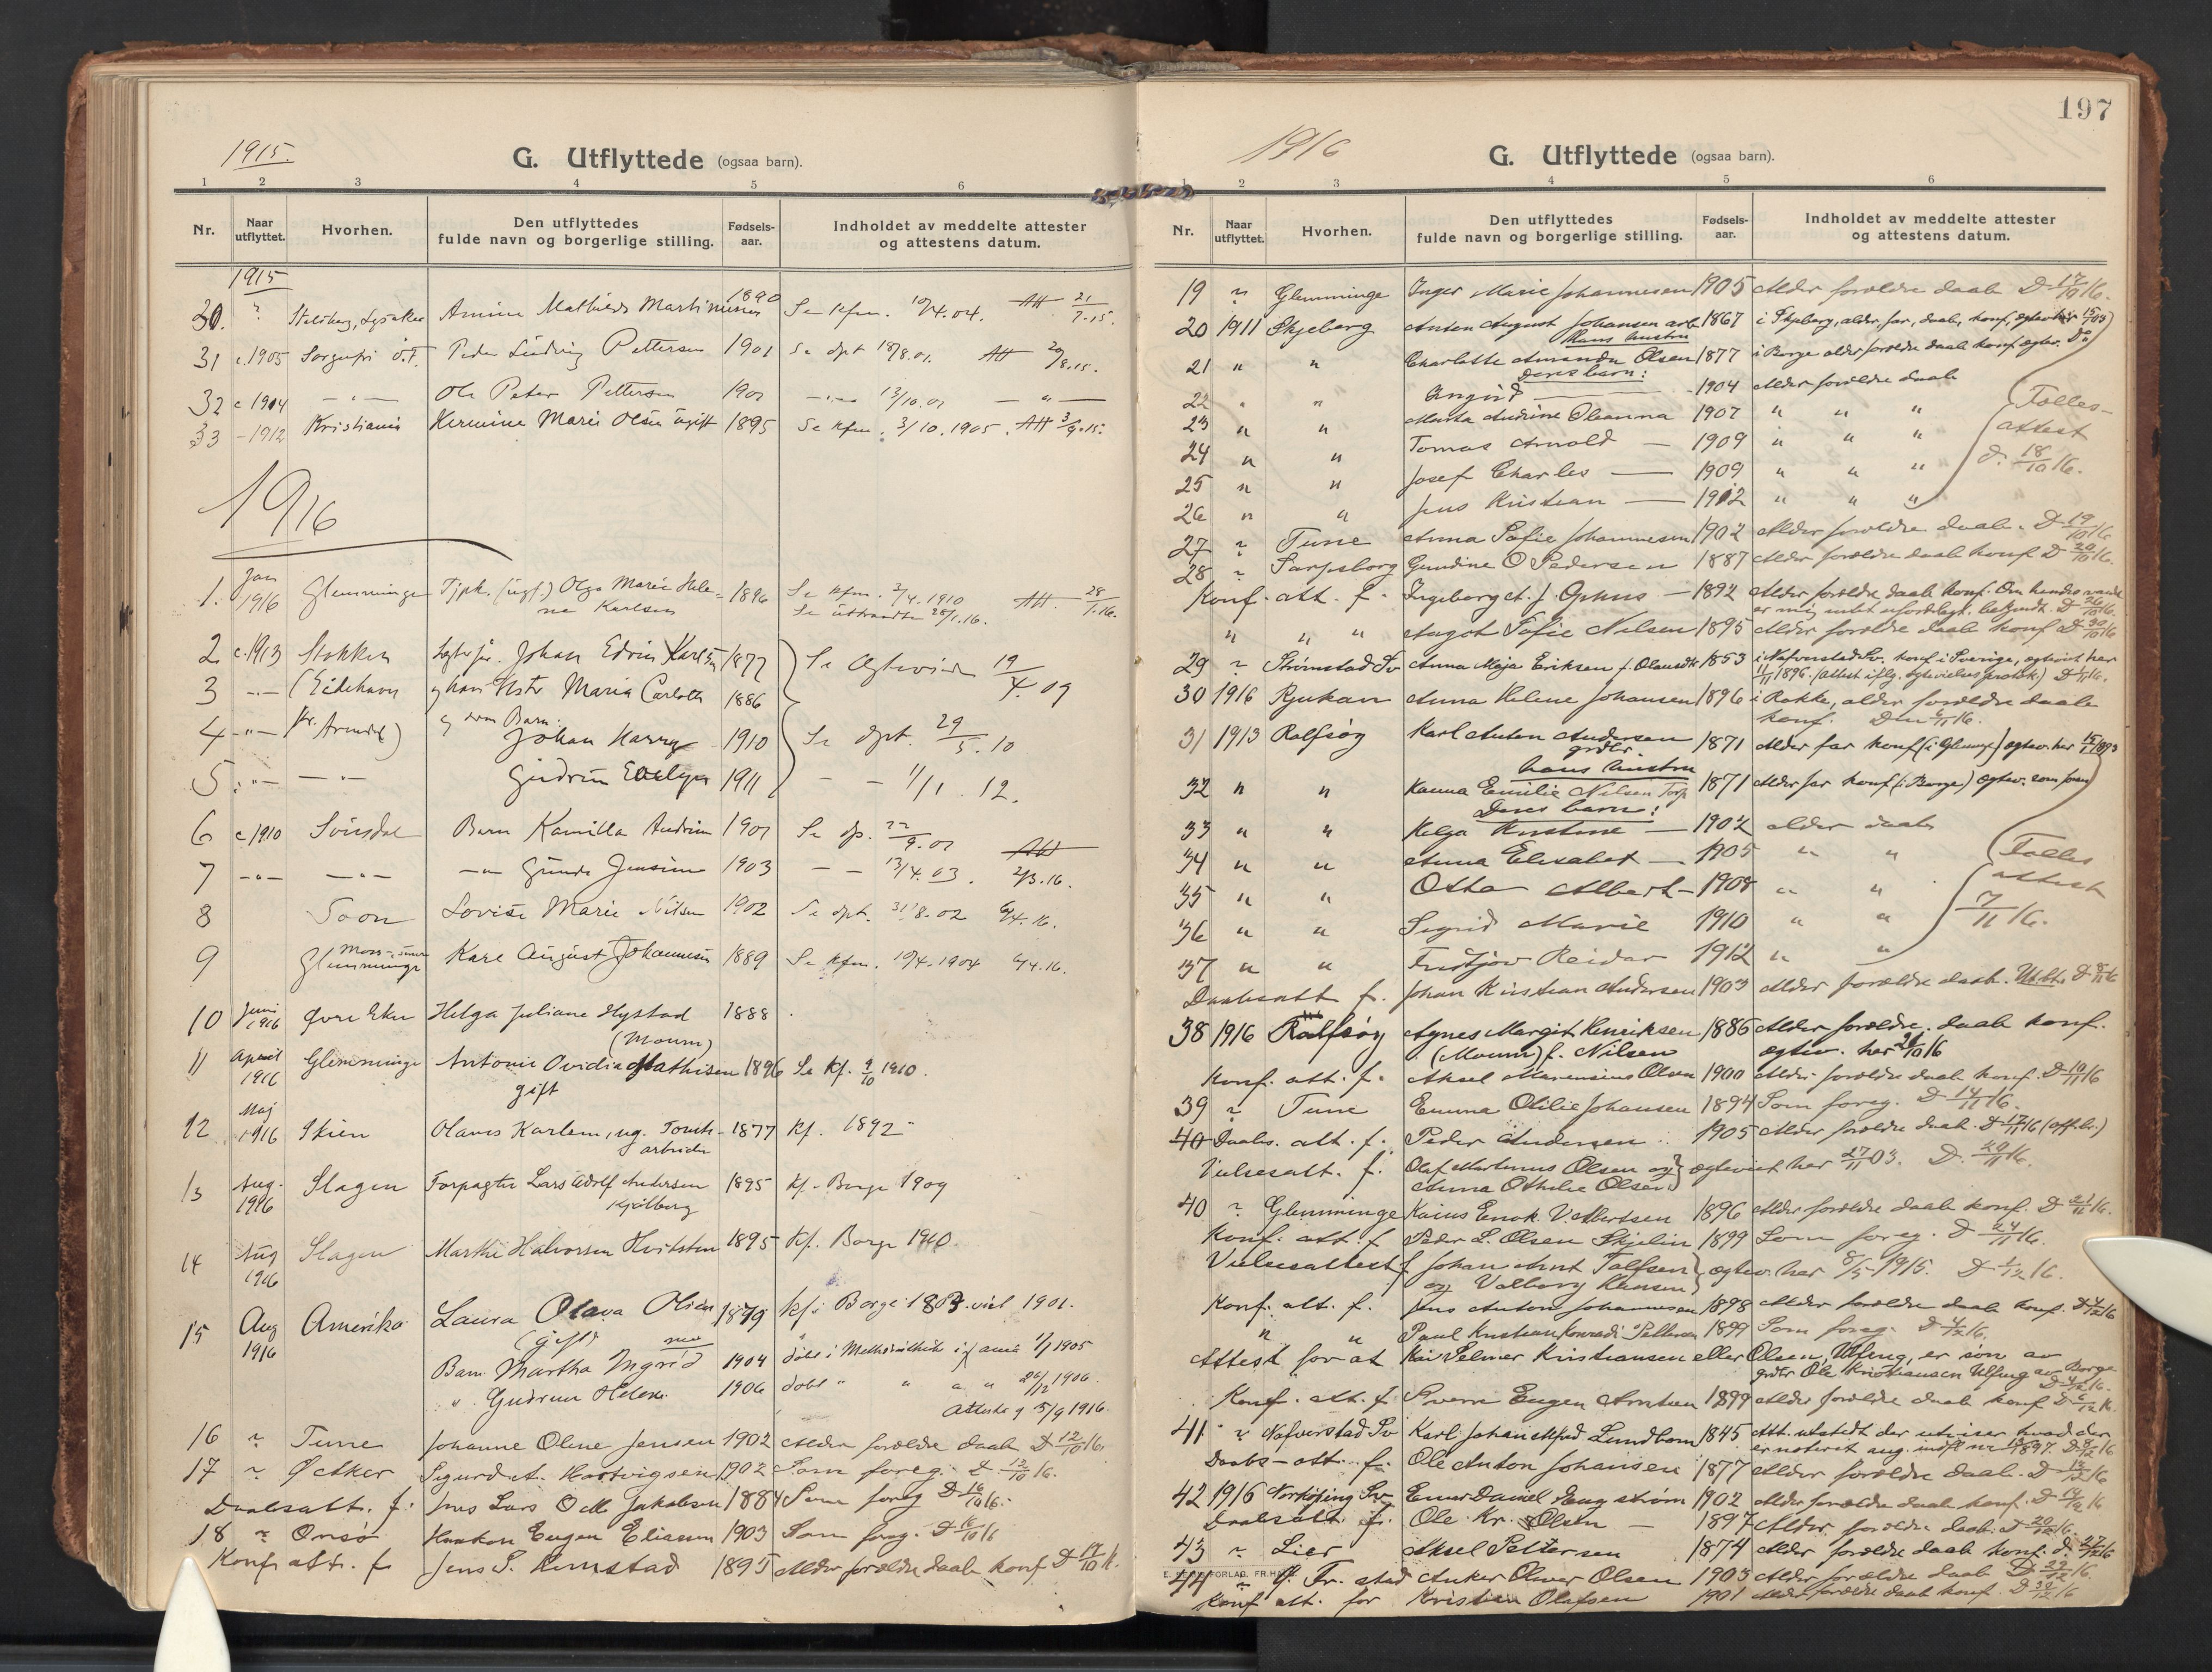 1915.
G. Utflyttede (ogsaa barn).
1 2 3 4 5 6
Nr. Naar utflyttet. Hvorhen. Den utflyttedes fulde navn og borgerlige stilling. Fødsels-aar. Indholdet av meddelte attester og attestens datum.
1915
30. " Amine Mathilde 1890 Se kfm. Att 21/7.15.
31 c. 1905 Peder Ludvig Pettersen 1901 Se dpt 18/8.01. Att
32 c 1904 — " — Ole Peter Pettersen 1901 13/10.01 — " —
33 - 1912 Kristiania Hermine Marie Olsen ugift 1895 Se kfm. 3/10.1905. Att 3/9.15.
1916
1. Jan 1916 Glemminge Tjpk. (ugf.) Olga Marie Hele-
ne Karlsen 1896 Se kfm. 3/4.1910 Att. 28/1.16.
Se 28/1.16.
2 c. 1913 Stokken Johan Edvin Karlsen 1877 Se 19/4.09
3 -"- (Eidehavn Maria Carlotta 1886
4 -"- pr. Arendal) og deres Barn:
Johan Harry 1910 Se dpt. 29/5.10
5 -"- — " — Gudrun Evelyn 1911 — — 1/1.12.
6 c 1910 Barn Kamilla Andrine 1901 Se dp. 22/9.01
7 -"- — " — -"- Gunda Jensine 1903 — — 13/4.03. Att 2/3.16.
8 Soon Lovise Marie Nilsen 1902 Se dpt. 31/8.02 6/4.16.
9 Glemminge Karl August Johannesen 1889 Se kfm. 10/4.1904 6/4.16.
10 Juni 1916 Øvre Eker Helga Juliane Hystad 1888
(Moum)
11 April 1916 Glemminge Antonie Ovidia Mathisen 1896 Se kf. 9/10 1910.
gift
12 Maj 1916 Skien Olaves Karlsen, ug. 1877 kf. 1892
arbeider
13 Aug. 1916 Slagen Forpagter Lars Adolf Andersen 1895 kf. Borge 1909
Kjølberg
14 Aug 1916 Slagen Marthe Halvorsen Hvitsten 1895 kf. Borge 1910.
15 Aug 1916 Amerika Laura Olava Olsen 1879 kf i Borge viet 1901.
(gift)
Barn Martha Ingrid 1904 døbt i 1/1 1905
" Gudrun Helene 1906 døbt " " 26/12 1906.
Attester 5/9 1916.
16 " Tune Johanne Oline Jensen 1902 Alder forældre daab D 12/10 16.
17 " Øcker Sigurd A. Hartvigsen 1902 Som foreg. D 13/10 16.
Daabsatt. f. Jens Lars Odll Jakobsen 1884 Som foreg D 16/10 16.
18 " Onsø Haakon Eugen Eliassen 1903 Som foreg. D 16/10 16
Konf. att. f. Jens S. 1895 Alder forældre daab konf D 17/10 16.
197
1916
G. Utflyttede (ogsaa barn).
1 2 3 4 5 6
Nr. Naar utflyttet. Hvorhen. Den utflyttedes fulde navn og borgerlige stilling. Fødsels-aar. Indholdet av meddelte attester og attestens datum.
19 " Glemminge Inger Marie Johannesen 1905 Alder forældre daab D 17/10 16.
20 1911 Skjeberg Anton August Johansen arb 1867 i Skjeberg, alder, far, daab, konf, ægteviet her
Hans hustru
21 " " Charlotte Amanda Olsen 1877 i Borge alder forældre daab konf ægtev. Do
Deres barn:
22 " " Ingrid — 1904 Alder forældre daab
23 " " Marta Andrine Oleanna 1907 " " "
24 " " Tomas Arnold — 1909 " " "
25 " " Josef Charles — 1909 " " "
26 " " Jens Kristian — 1912 " " "
Fælles-
attest
d. 18/10 16.
27 " Tune Anna Sofie Johannesen 1902 Alder forældre daab. D 19/10 16
28 " Sarpsborg Gundine O Pedersen 1887 Alder forældre daab konf D 20/10 16.
Konf. att. f. Ingeborg A. J. Ophus — 1892 Alder forældre daab konf. Om hendes vandel
er mig intet ufordelagt. bekjendt. D 26/10 16.
" " " Aagot Sofie Nilsen 1895 Alder forældre daab konf D 30/10 16
29 " Strømstad Sv Anna Maja Eriksen f. Olausdtr 1853 i Nafverstad Sv. konf i Sverige, ægteviet her
1896. (Attest iflg. ægtevielsesprotok.)
30 1916 Rjukan Anna Helene Johansen 1896 i Rokke, alder forældre daab
konf. Den 6/11 16.
31 1913 Rolfsøy Karl Anton Andersen 1871 Alder far konf (i Glemmge) ægtev. her
grdbr.
hans hustru
32 " " Hanna Emilie Nilsen Torp 1871 Alder far konf (i Borge) ægtev. som foran
Deres barn:
33 " " Helga Kristine — 1902 alder daab
34 " " Anna Elisabet — 1905 " "
35 " " Otto Albert — 1908 " "
36 " " Sigrid Marie 1910 " "
37 " " Fridtjov Reidar 1912 " "
Fælles
attest
7/11 16.
Daabsatt f. Johan Kristian Andersen 1903 Alder forældre daab. D 8/11 16
38 1916 Rolfsøy Agnes Margit Henriksen 1886 Alder forældre daab konf.
(Moum) f. Nilsen ægtev. her
Konf. att. f. Aksel Marensius Olsen 1900 Alder forældre daab konf. D 10/11 16
39 " Tune Emma Otilie Johansen 1894 Som foreg. D 14/11 16.
40 Daabs. att. f. Peder Andersen 1905 Alder forældre daab D 17/11 16
Vielsesatt. f. Olaf Martinius Olsen og
Anna Othilie Olsen ægteviet her 27/11 03. D. 20/11 16.
40 " Glemminge Kaius Enok V. Albertsen 1896 Alder forældre daab konf. D 21/11 16.
Konf. att. f Peder L. Olsen Skjelin 1899 Som foreg. D 24/11 16.
Vielsesattest f Johan Arnt Tolfsen
og Valborg Hansen ægtev. her 8/5 1915. D 1/12 16.
Konf. att. f. Jens Anton Johannesen 1898 Alder forældre daab konf. D 4/12 16
" " Paul Kristian Konradi Pettersen 1899 Som foreg. D 4/12 16.
Attest for at Kai Selmer Kristiansen eller Olsen, Ulfeng, er søn av
grdbr Ole Kristiansen Ulfeng av Borge
Konf. att. f Sverre Eugen Arntsen 1899 Alder forældre daab konf
41 " Nafverstad Sv Karl Johan Alfred Lundbom 1845 Att. utstedt der utviser hvad der
er noteret ang. indfl 1897.
Daabs-att. f. Ole Anton Johansen 1877 Alder forældre daab. D
42 1916 Norköping Sv Einar Daniel Engström 1902 Alder forældre daab konf. D
Daabsatt. f. Ole Kr. Olsen — 1897 Alder forældre daab. D 20/12 16.
43 " Lier Aksel Pettersen 1874 Alder forældre daab konf. d. 27/12 16
44 " G. Fr. stad Anker Oliver Olsen 1903 Alder forældre daab D 29/12 16.
Konf att. for Kristian Olafsen 1901 Alder forældre daab konf. D 30/12 16